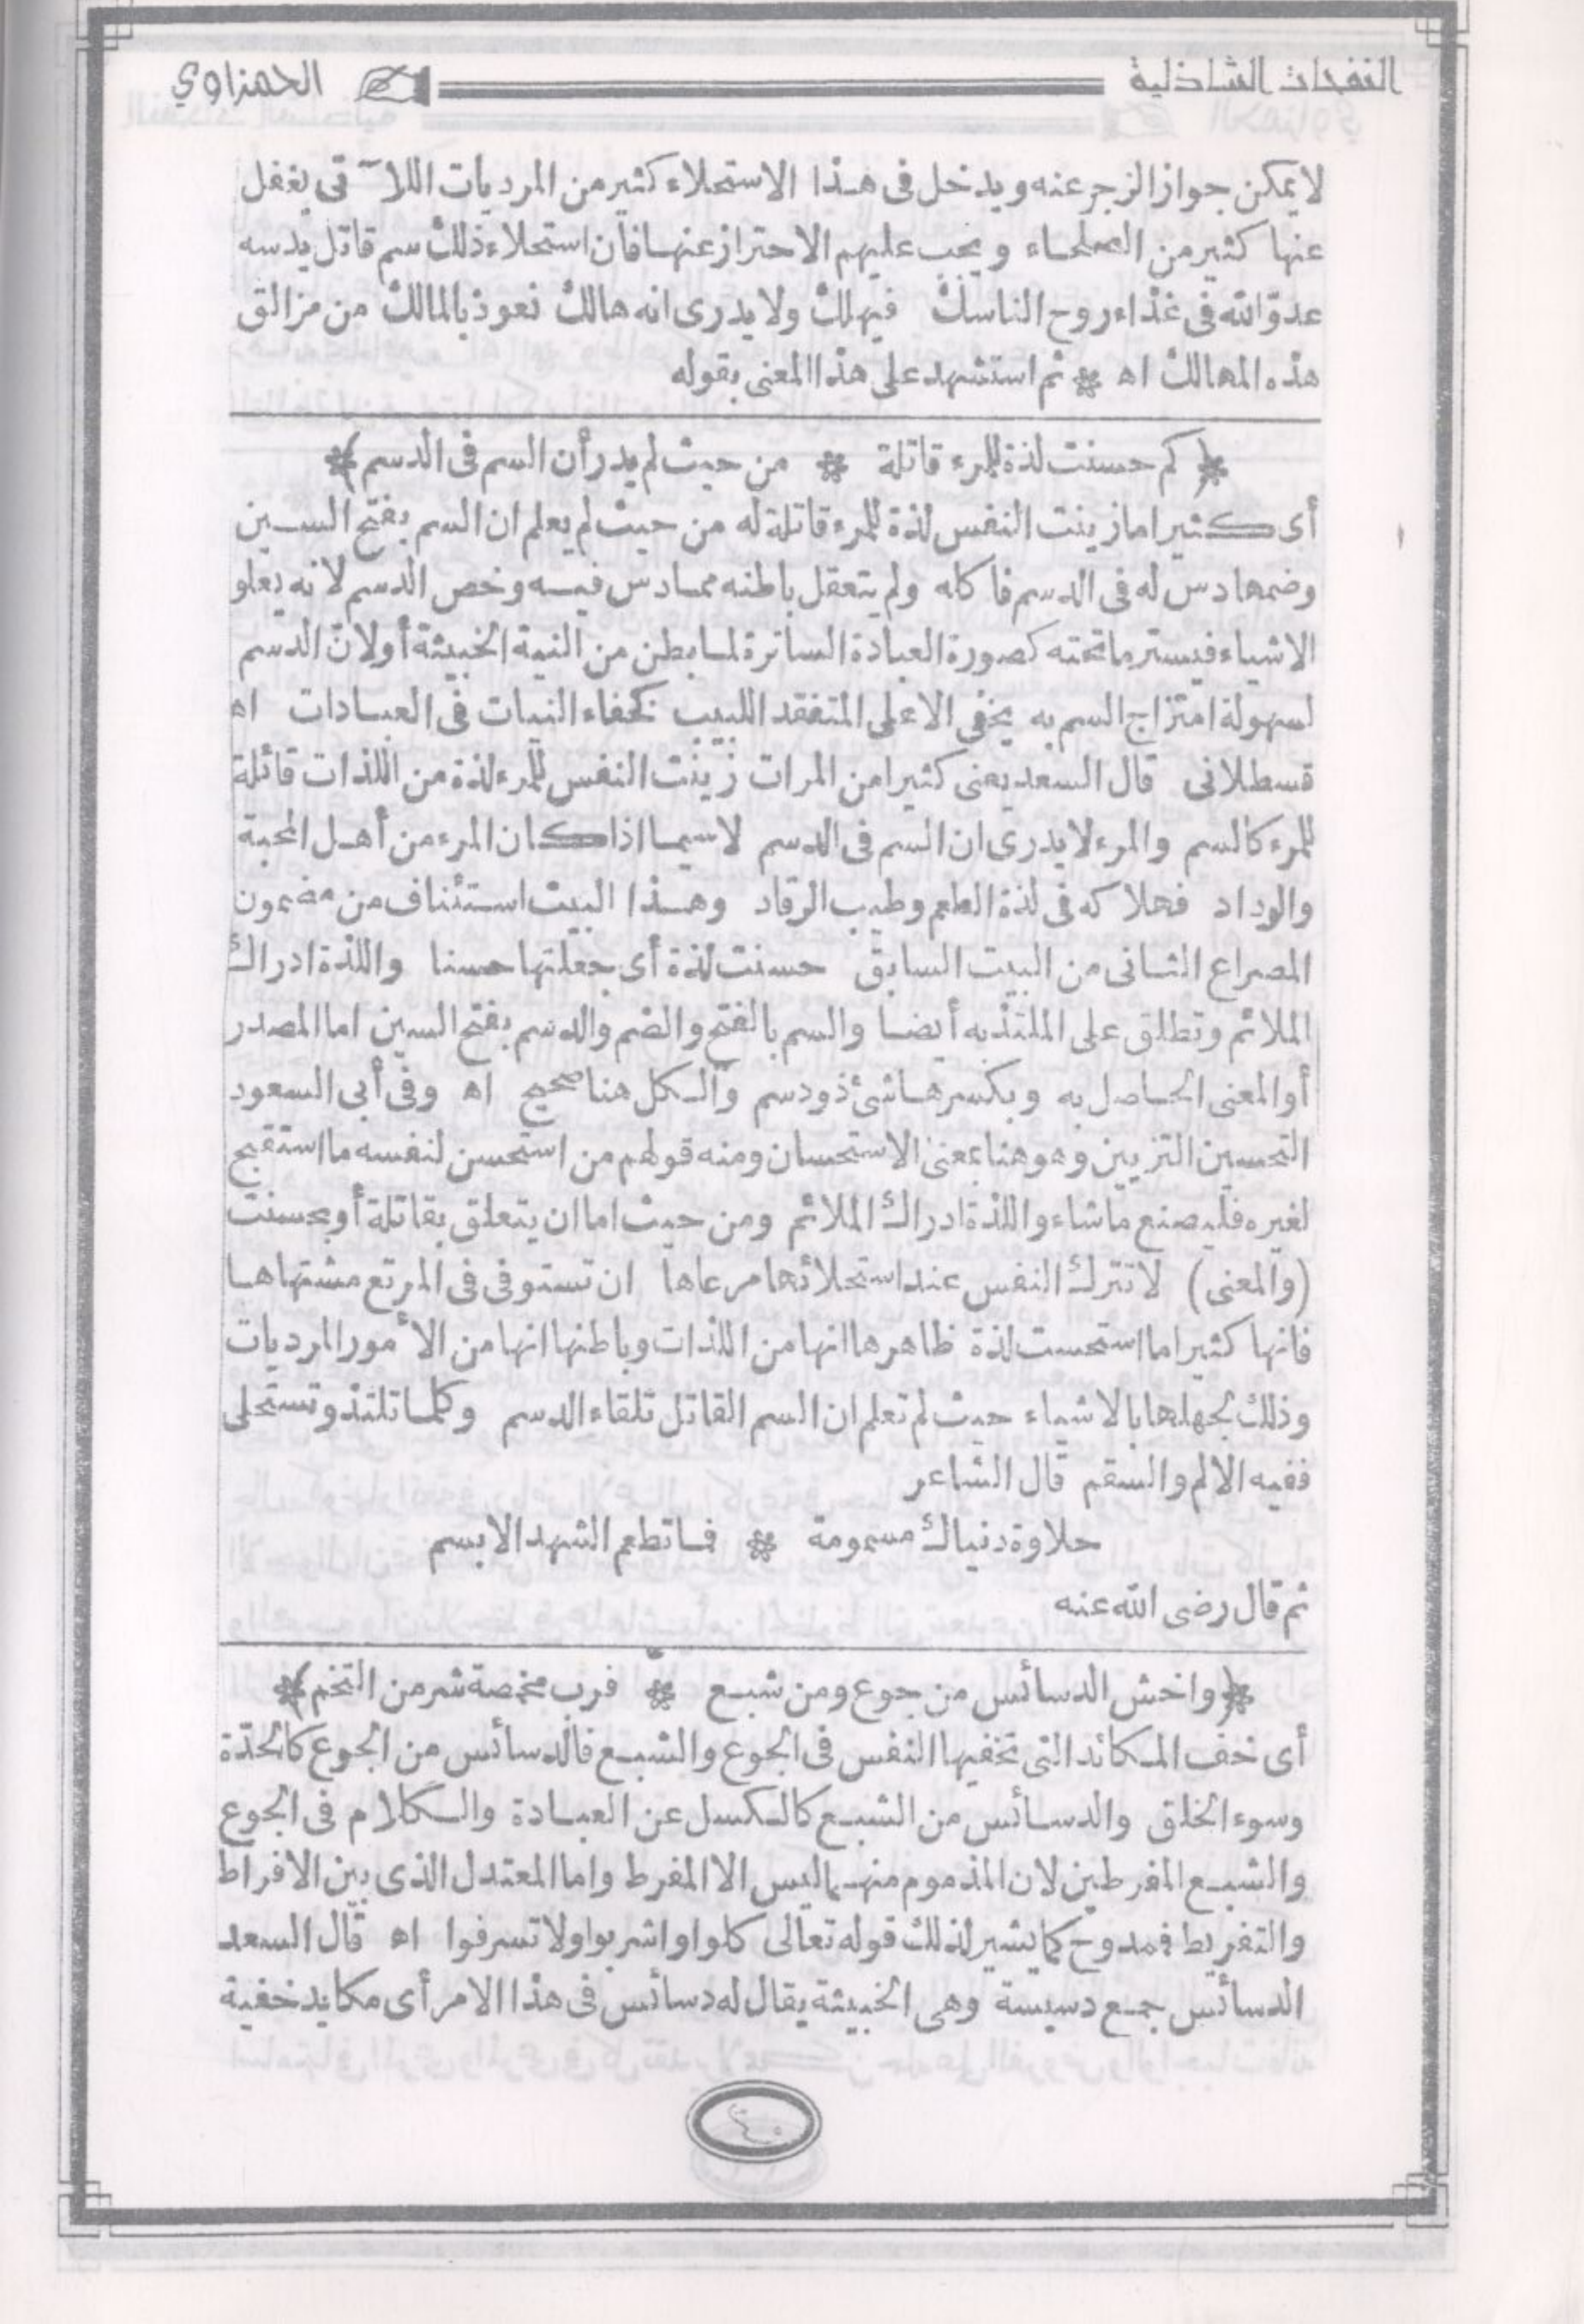 النفحات الشاذلية الحمزاوي
لا يمكن جواز الزجر عنه ويدخل فى هذا الاستحلاء كثير من المرديات اللا تى يغفل
عنها كثير من الصلحاء ويجب عليهم الاحتراز عنها فان استحلاء ذلك سم قاتل يدسه
عدوّ الله فى غذاء روح الناسك فيهلك ولا يدرى انه هالك نعوذ بالمالك من مزالق
هذه المهالك اه * ثم استشهد على هذا المعنى بقوله
* ( كم حسنت لذة للمرء قاتلة * من حيث لم يدر أن السم فى الدسم ) *
أى كثيرا ما زينت النفس لذة للمرء قاتلة له من حيث لم يعلم ان السم بفتح السين
وضمها دس له فى الدسم فاكله ولم يتعقل باطنه مما دس فيه وخص الدسم لانه يعلو
الاشياء فيستر ما تحته كصورة العبادة الساترة لما بطن من النية الخبيثة أو لانّ الدسم
لسهولة امتزاج السم به يخفى الا على المتفقد اللبيب كخفاء النيات فى العبادات اه
قسطلانى قال السعد يعنى كثيرا من المرات زينت النفس للمرء لذة من اللذات قاتلة
للمرء كالسم والمرء لا يدرى ان السم فى الدسم لا سيما اذا كان المرء من أهل المحبة
والوداد فهلاكه فى لذة الطعم وطيب الرقاد وهذا البيت استئناف من مضمون
المصراع الثانى من البيت السابق حسنت لذة أى جعلتها حسنا واللذة ادراك
الملائم وتطلق على الملتذ به أيضا والسم بالفتح والضم والدسم بفتح السين اما المصدر
أو المعنى الحاصل به وبكسرها شئ ذو دسم والكل هنا صحيح اه وفى أبى السعود
التحسين التزيين وهو هنا بمعنى الاستحسان ومنه قولهم من استحسن لنفسه ما استقبح
لغيره فليصنع ما شاء واللذة ادراك الملائم ومن حيث اما ان يتعلق بقاتلة أو بحسنت
(والمعنى) لا تترك النفس عند استحلائها مرعاها ان تستوفى فى المرتع مشتهاها
فانها كثيرا ما استحسنت لذة ظاهرها انها من اللذات وباطنها انها من الأمور المرديات
وذلك لجهلها بالاشياء حيث لم تعلم ان السم القاتل تلقاء الدسم وكلما تلتذ وتستحلى
ففيه الالم والسقم قال الشاعر
حلاوة دنياك مسمومة * فما تطعم الشهد الا بسم
ثم قال رضى الله عنه
* ( واخش الدسائس من جوع ومن شبع * فرب مخمصة شر من التخم ) *
أى خف المكائد التى تخفيها النفس فى الجوع والشبع فالدسائس من الجوع كالحدّة
وسوء الخلق والدسائس من الشبع كالكسل عن العبادة والكلام فى الجوع
والشبع المفرطين لان المذموم منهما ليس الا المفرط واما المعتدل الذى بين الافراط
والتفريط فمدوح كما يشير لذلك قوله تعالى كلوا واشربوا ولا تسرفوا اه قال السعد
الدسائس جمع دسيسة وهى الخبيثة يقال له دسائس فى هذا الامر أى مكايد خفية